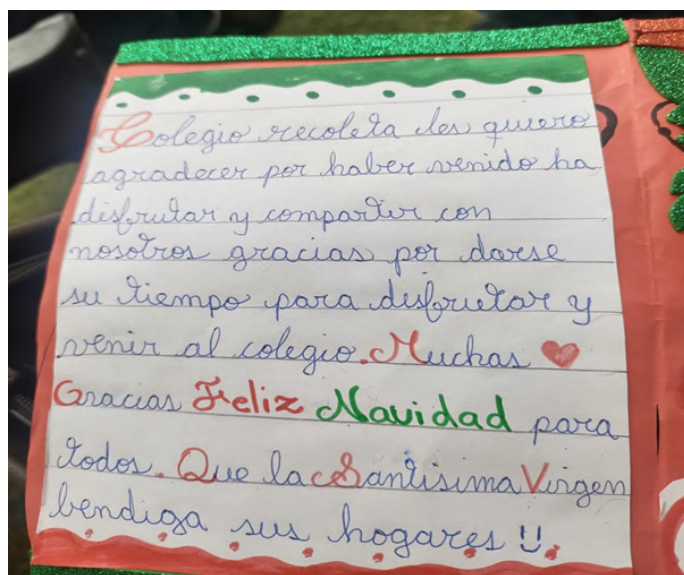 Colegio recoleta les quiero
agradecer por haber venido ha
disfrutar y compartir con
nosotros gracias por darse
su tiempo para disfrutar y
venir al colegio. Muchas
Gracias Feliz Navidad para
todos. Que la Santisima Virgen
bendiga sus hogares !!